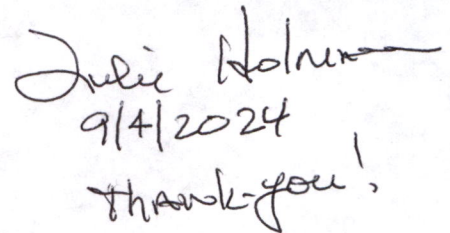 Julie Holm
9/4/2024
Thank-you!